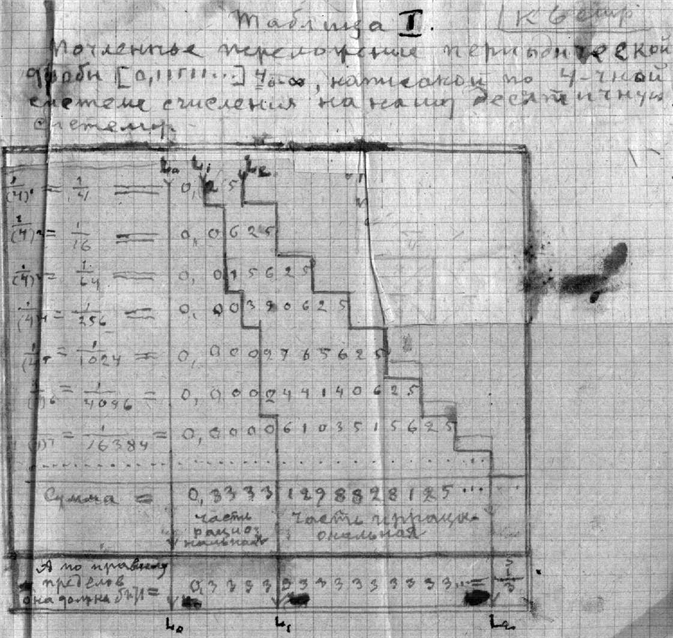 Таблица I.
К 6 стр
Почленное переложение периодической
дроби [0,11111...]₄ n=∞, написаной по 4-чной
системе счисления на нашу десятичную
систему.
L₀ L₁ L₂
1/(4)¹ = 1/4 = 0,25
1/(4)² = 1/16 = 0,0625
1/(4)³ = 1/64 = 0,015625
1/(4)4 = 1/256 = 0,00390625
1/(4)5 = 1/1024 = 0,0002765625
1/(4)6 = 1/4096 = 0,000244140625
1/(4)7 = 1/16384 = 0,00006103515625
Сумма = 0,33331298828125...
часть рациональная
часть иррациональная
А по правилу
пределов
она должна быть = 0,333333333333...= 1/3
L₀ L₁ L₂